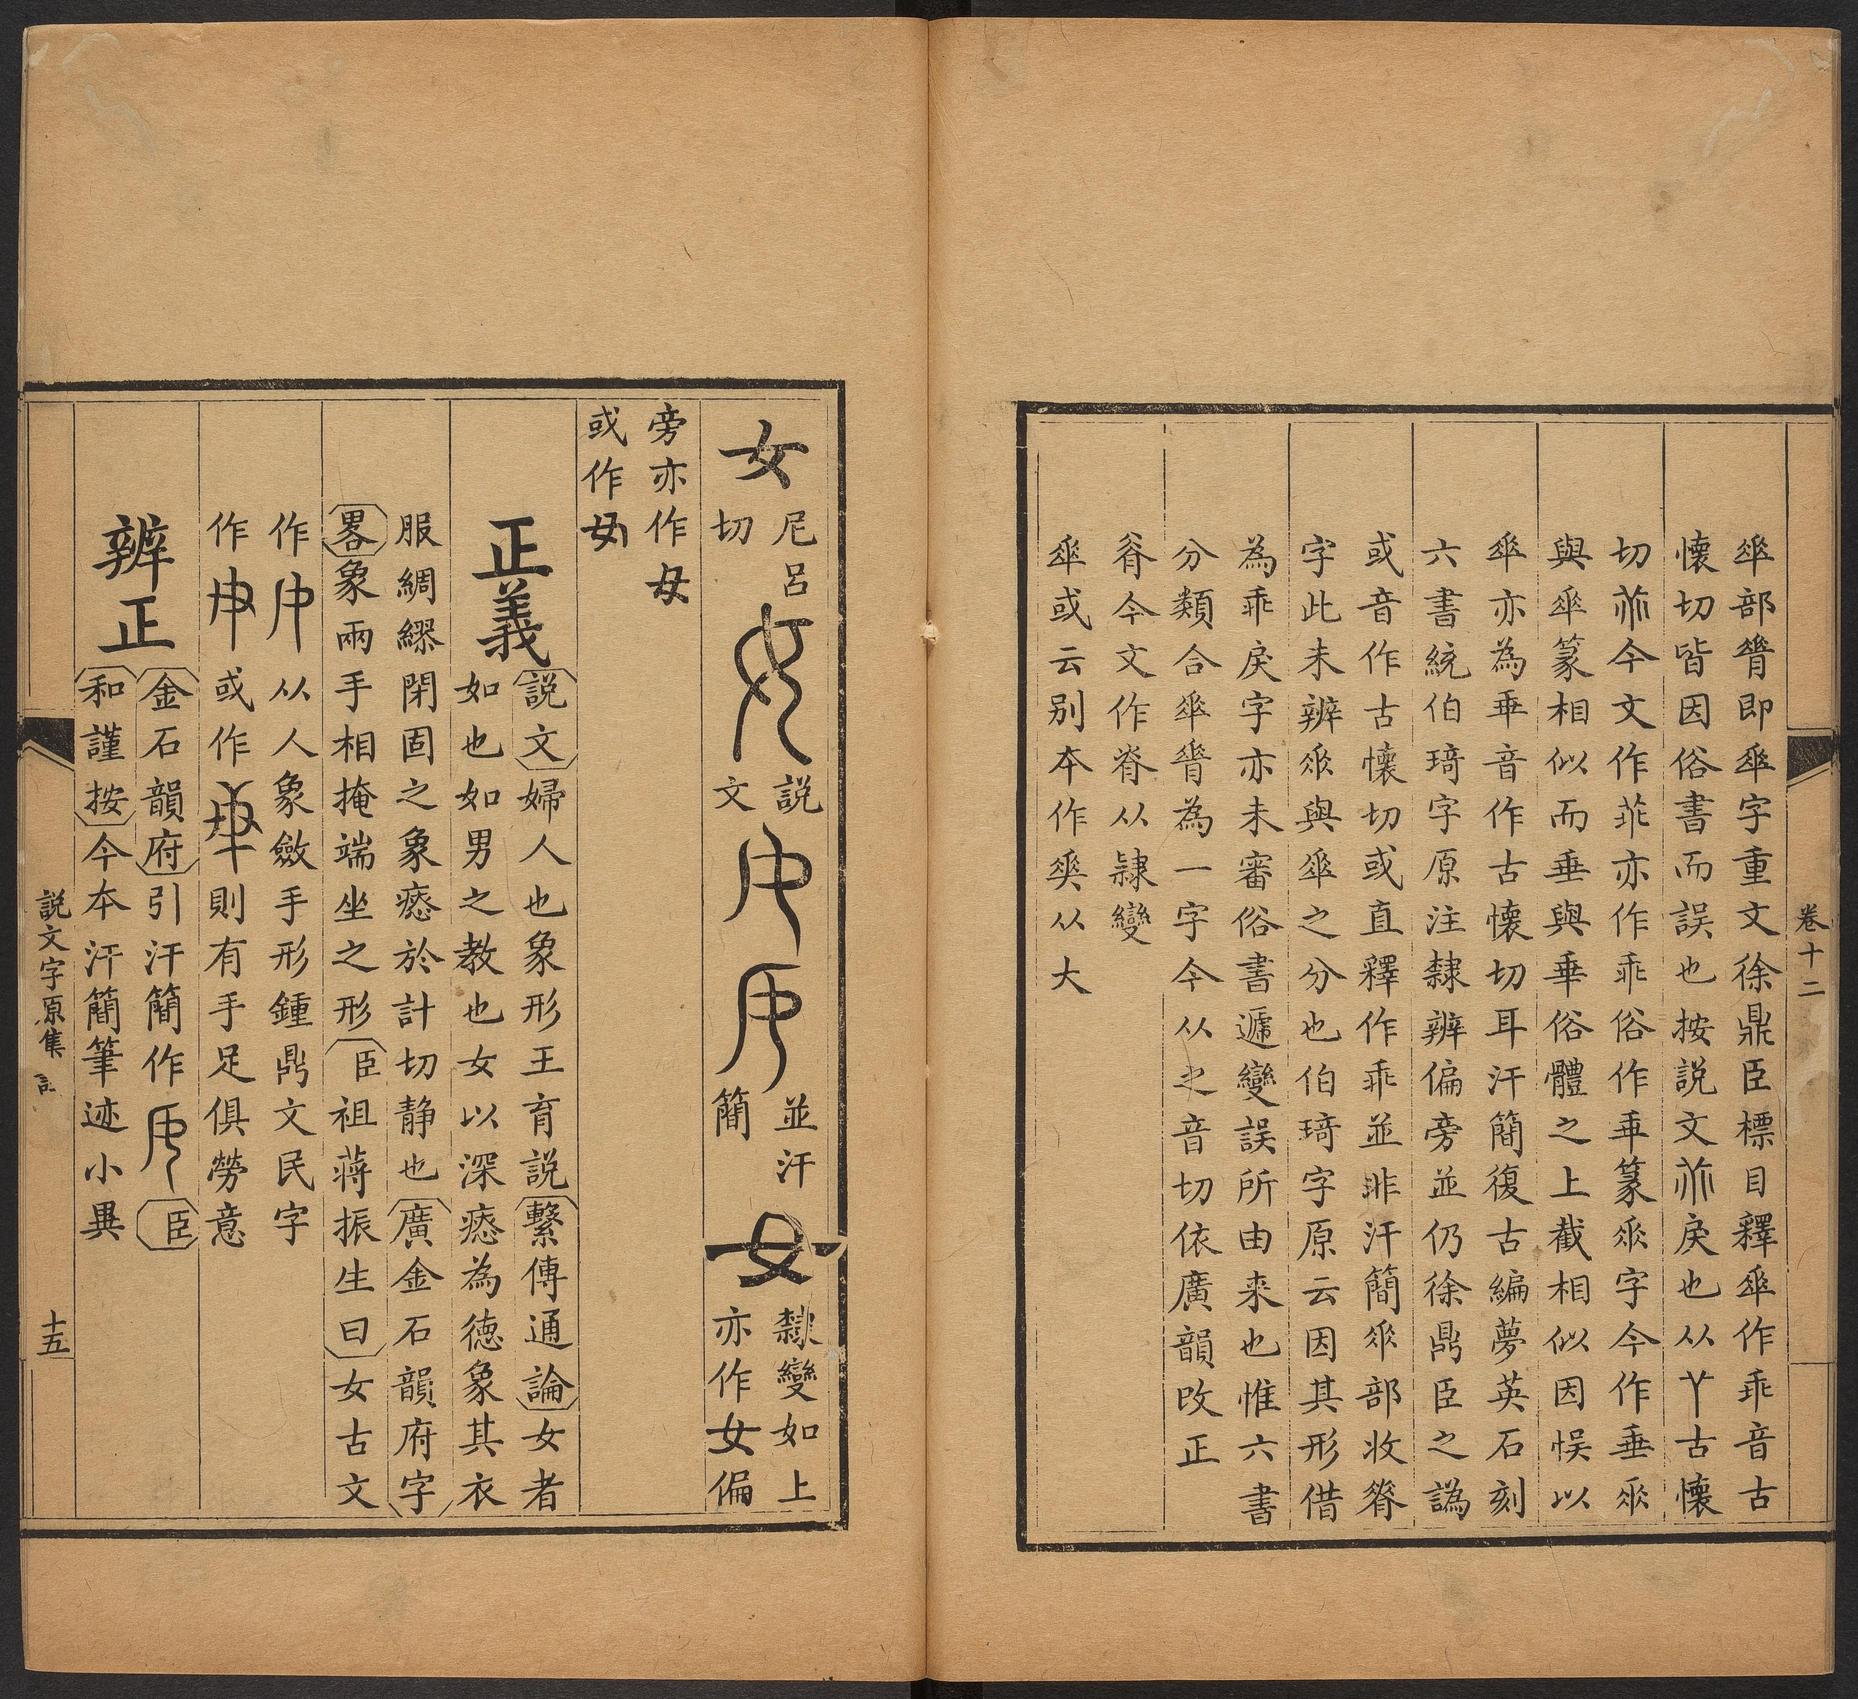 卷十二
傘部脊即傘字重文徐鼎臣標目釋傘作乖音古
懷切皆因俗書而誤也按説文𠁥戾也从丫古懷
切𠁥今文作菲亦作乖俗作𠂹篆𠂹字今作垂𠂹
與傘篆相似而垂與垂俗體之上截相似因悮以
傘亦為垂音作古懷切耳汗簡復古編夢英石刻
六書統伯琦字原注隸辨偏旁並仍徐鼎臣之譌
或音作古懷切或直釋作乖並非汗簡𠂹部收脊
字此未辨𠂹與傘之分也伯琦字原云因其形借
為乖戾字亦未審俗書遞變誤所由来也惟六書
分類合傘脊為一字今从之音切依廣韻改正
脊今文作脊从隸變
傘或云别本作𠌶从大
女 尼呂切
説文
並汗簡
隸變如上亦作女偏
旁亦作母
或作
正義 説文婦人也象形王育説繫傳通論女者
如也如男之教也女以深㥷為德象其衣
服綢繆閉固之象㥷於計切静也廣金石韻府字
畧象兩手相掩端坐之形臣祖蔣振生曰女古文
作 从人象斂手形鍾鼎文民字
作 或作 則有手足俱勞意
辨正 金石韻府引汗簡作 臣
和謹按今本汗簡筆迹小異
説文字原集註
十五